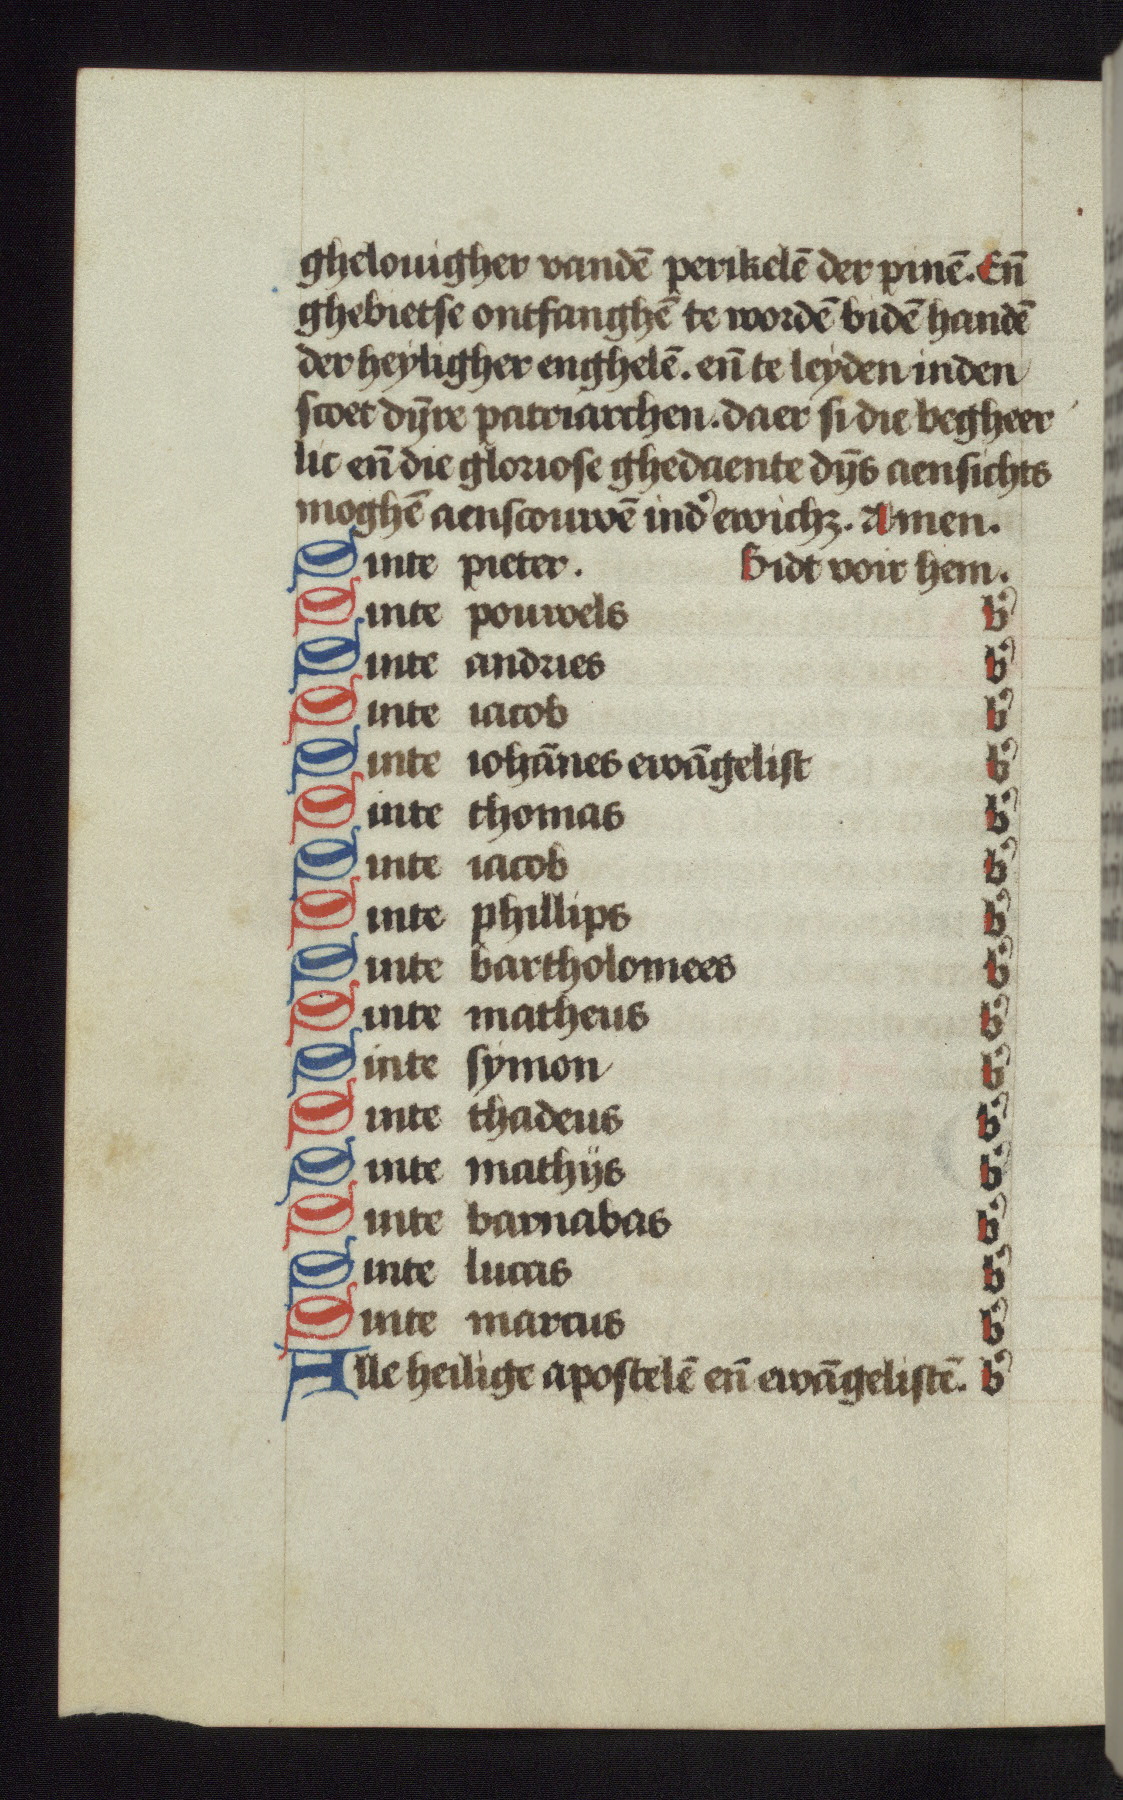 ghelouigher vandē perikelē der pinē. Eñ
ghebietse ontfanghē te wordē bidē handē
der heyligher enghelē. eñ te leyden inden
scoet dȳre patriarchen. daer si die begheer
lic eñ die gloriose ghedaente dȳs aensichts
moghē aenscouwē ind' ewichꝫ. Amen.
Sinte pieter. Bidt voir hem.
Sinte pouwels b'
Sinte andries b'
Sinte iacob b'
Sinte iohānes ewāgelist b'
Sinte thomas b'
Sinte iacob b'
Sinte phillips b'
Sinte bartholomees b'
Sinte matheus b'
Sinte symon b'
Sinte thadeus b'
Sinte mathijs b'
Sinte barnabas b'
Sinte lucas b'
Sinte marcus b'
Alle heilige apostelē eñ ewāgelistē. b'